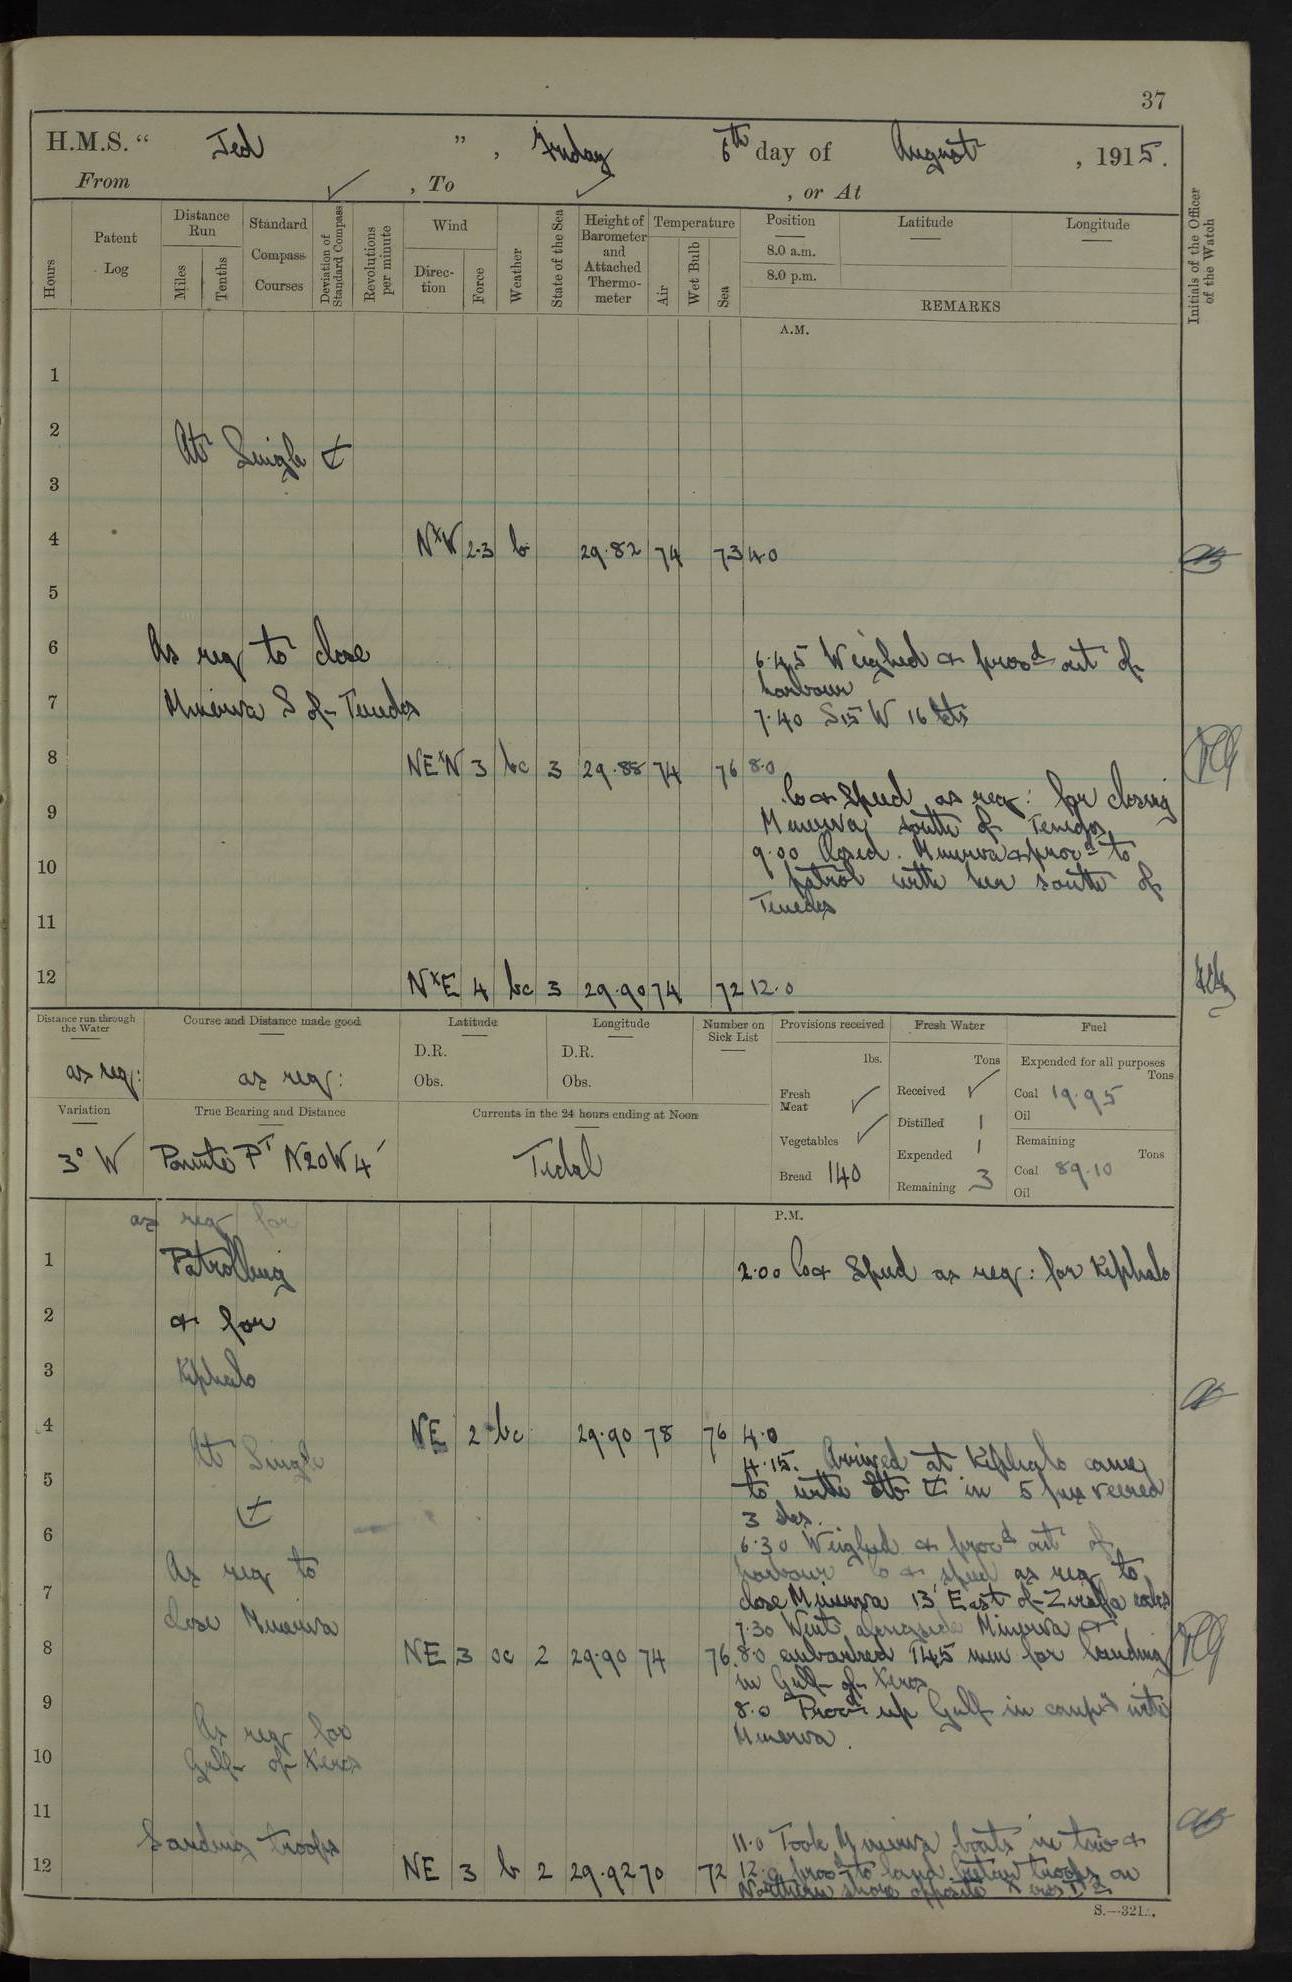 37
H.M.S. “ Jed ” , Friday 6th day of August , 1915.
From ✓ , To ✓ , or At
Hours
Patent Log
Distance Run
Miles
Tenths
Standard Compass Courses
Deviation of Standard Compass
Revolutions per minute
Wind
Direction
Force
Weather
State of the Sea
Height of Barometer and Attached Thermometer
Temperature
Air
Wet Bulb
Sea
Position
8.0 a.m.
8.0 p.m.
Latitude
Longitude
REMARKS
Initials of the Officer of the Watch
A.M.
1
2
At Single
3
4 NxW 2.3 b 29.82 74 73 4.0
5
6 As req to close
6.45 Weighed & procd out of
harbour
7 Minerva S of Tenedos
7.40 S15W 16 kts
8 NExN 3 bc 3 29.88 74 76 8.0
Co & Speed as req: for closing
9 Minerva south of Tenedos
9.00 Closed Minerva & procd to
10 patrol with her south of
Tenedos
11
12 NxE 4 bc 3 29.90 74 72 12.0
Distance run through the Water
as req:
Course and Distance made good
as req:
Latitude
D.R.
Obs.
Longitude
D.R.
Obs.
Number on Sick List
Provisions received
lbs.
Fresh Meat ✓
Vegetables ✓
Bread 140
Fresh Water
Tons
Received ✓
Distilled 1
Expended 1
Remaining 3
Fuel
Expended for all purposes
Tons
Coal 19.95
Oil
Remaining
Tons
Coal 89.10
Oil
Variation
3° W
True Bearing and Distance
Ponente Pt N20W 4'
Currents in the 24 hours ending at Noon
Tidal
P.M.
as req for
1 Patrolling
2.00 Co & Speed as req: for Kephalo
2 & for
3 Kephalo
4 NE 2 bc 29.90 78 76 4.0
At Single
4.15. Arrived at Kephalo came
5 to with in 5 fms veered
3 shs.
6
6.30 Weighed & procd out of
harbour Co & speed as req to
As req to
7 close Minerva 13' East of
close Minerva
7.30 Went alongside Minerva &
8 NE 3 oc 2 29.90 74 76 8.0 embarked 145 men for landing
in Gulf of Xeros
9 8.0 Procd up Gulf in compy with
Minerva.
As req for
10 Gulf of Xeros
11
Landing troops
11.0 Took Minerva boats in tow &
12 NE 3 b 2 29.92 70 72 12.0 procd to land troops on
Northern shore opposite Xeros Id
S.—321.